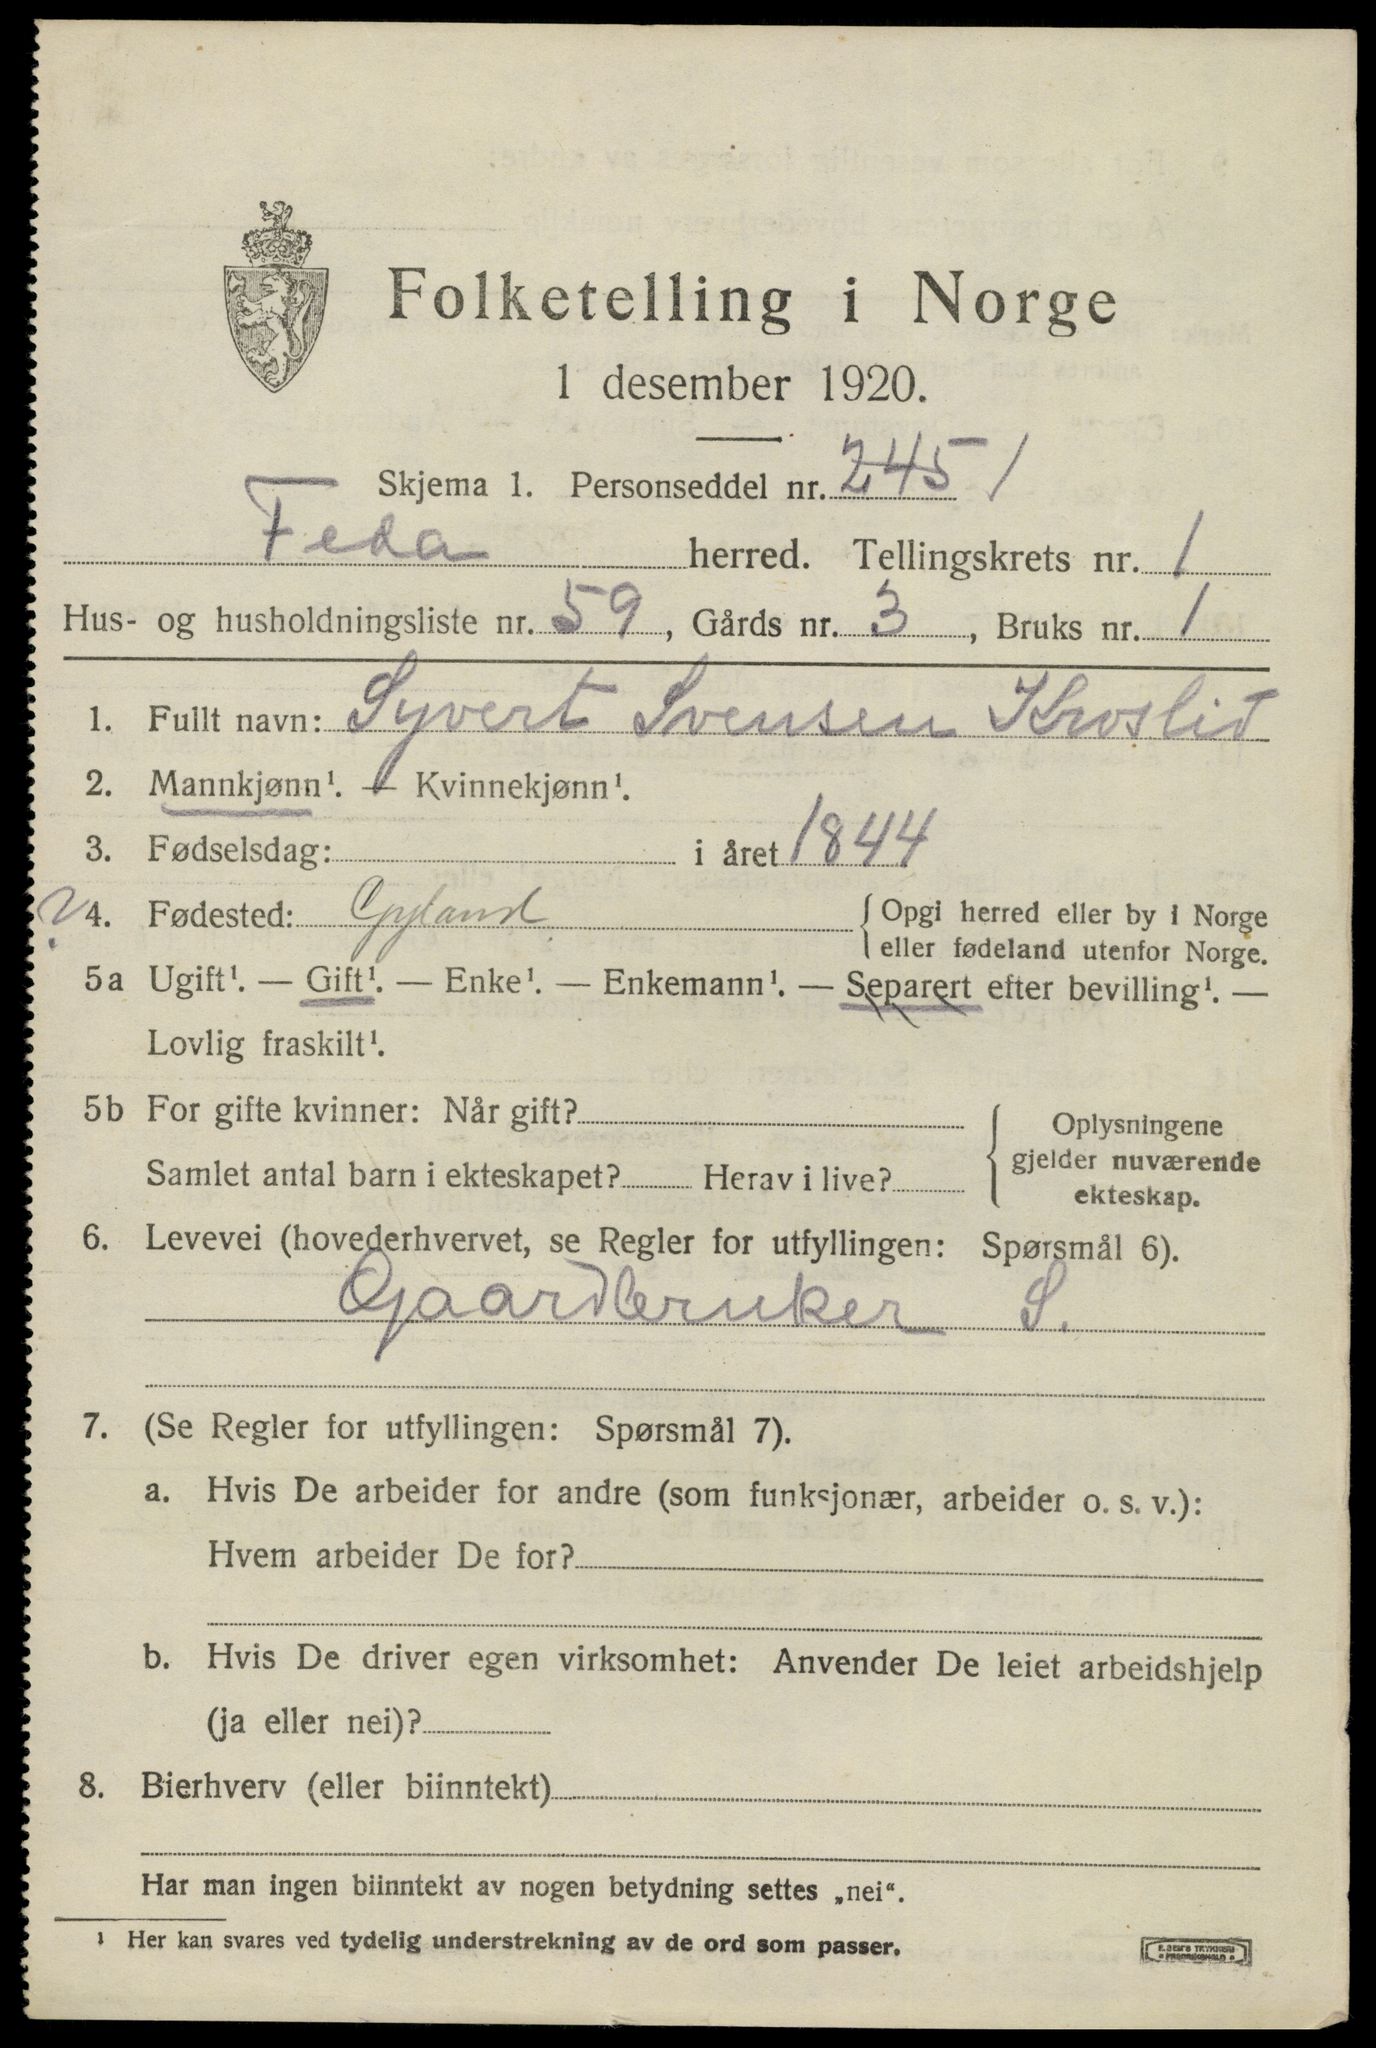 Folketelling i Norge
1 desember 1920.
Skjema 1. Personseddel nr. 245 /
Feda herred. Tellingskrets nr. 1
Hus- og husholdningsliste nr. 59, Gårds nr. 3, Bruks nr. 1
1. Fullt navn: Syvert Svensen Kroslid
2. Mannkjønn¹. — Kvinnekjønn¹.
3. Fødselsdag: i året 1844
4. Fødested: Gyland
{ Opgi herred eller by i Norge
eller fødeland utenfor Norge.
5a Ugift¹. — Gift¹. — Enke¹. — Enkemann¹. — Separert efter bevilling¹. —
Lovlig fraskilt¹.
5b For gifte kvinner: Når gift?
Samlet antal barn i ekteskapet? Herav i live?
{ Oplysningene
gjelder nuværende
ekteskap.
6. Levevei (hovederhvervet, se Regler for utfyllingen: Spørsmål 6).
Gaardbruker S.
7. (Se Regler for utfyllingen: Spørsmål 7).
a. Hvis De arbeider for andre (som funksjonær, arbeider o. s. v.):
Hvem arbeider De for?
b. Hvis De driver egen virksomhet: Anvender De leiet arbeidshjelp
(ja eller nei)?
8. Bierhverv (eller biinntekt)
Har man ingen biinntekt av nogen betydning settes „nei“.
¹ Her kan svares ved tydelig understrekning av de ord som passer.